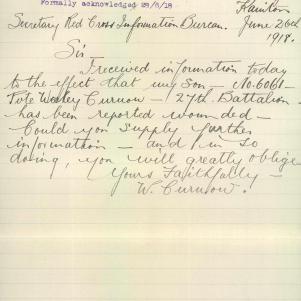 Formally acknowledged 28/6/18
Hamilton
Secretary Red Cross Information Bureau. June 26th
1918.
Sir
I received information today
to the effect that my Son - No. 6061 -
Pvte Wesley Curnow - 27th. Battalion -
has been reported wounded -
Could you supply further
information - and in so
doing, you will greatly oblige
Yours Faithfully -
W. Curnow.